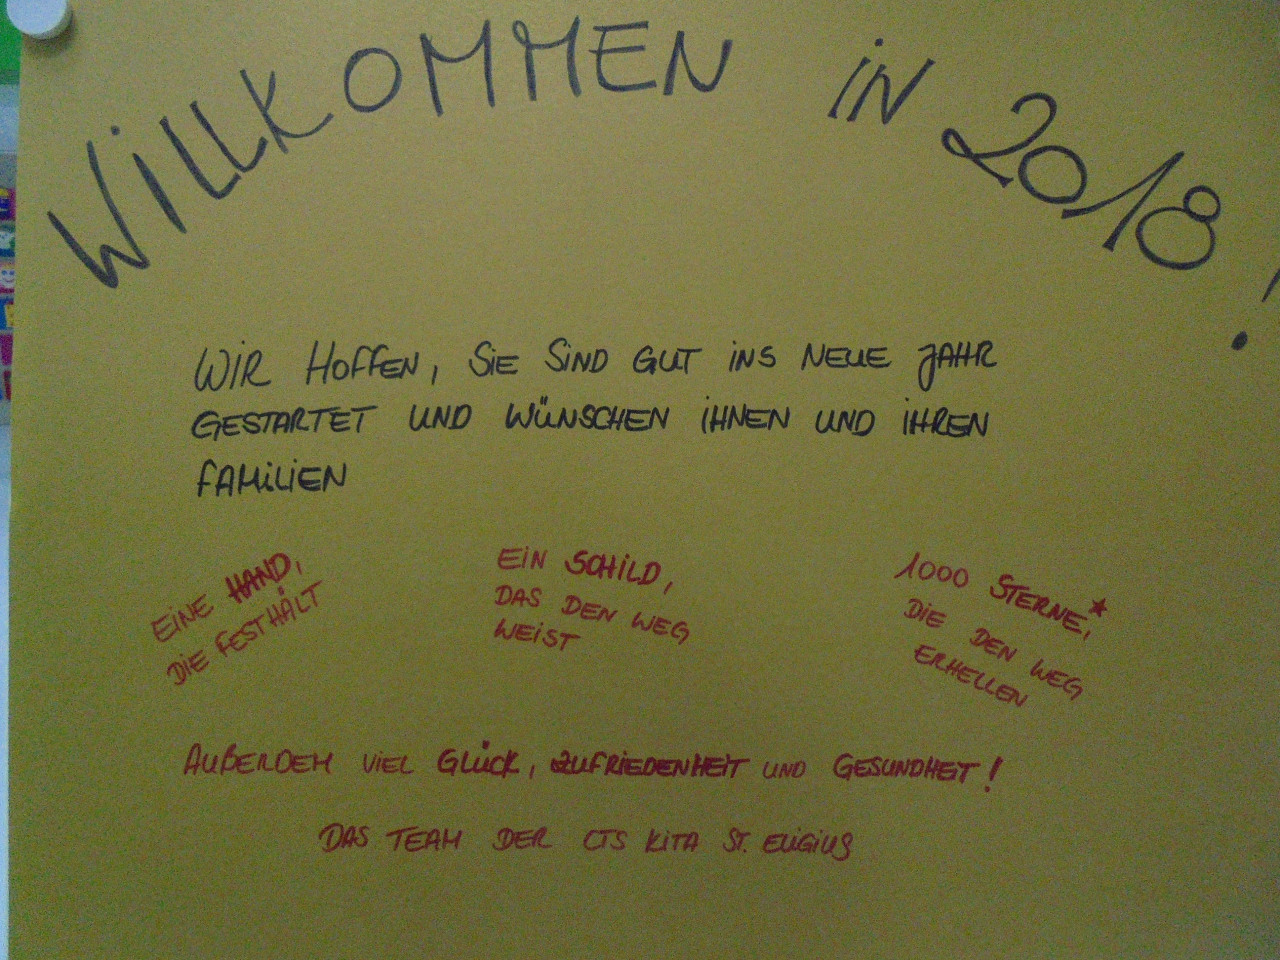 WiLLKOMMEN iN 2018!
WiR HOFFEN, SiE SiND GUT iNS NEUE JAHR
GESTARTET UND WÜNSCHEN iHNEN UND iHREN
FAMiLiEN
EiNE HAND,
DiE FESTHÄLT
EiN SCHiLD,
DAS DEN WEG
WEiST
1000 STERNE,
DiE DEN WEG
ERHELLEN
AUßERDEM ViEL GLÜCK, ZUFRiEDENHEiT UND GESUNDHEiT!
DAS TEAM DER CTS KiTA ST. ELiGiUS